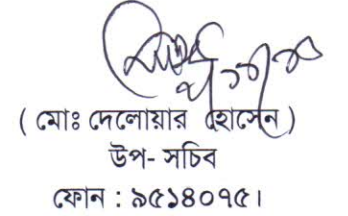 ( মোঃ দেলোয়ার হোসেন )
উপ- সচিব
ফোন : ৯৫১৪০৭৫।